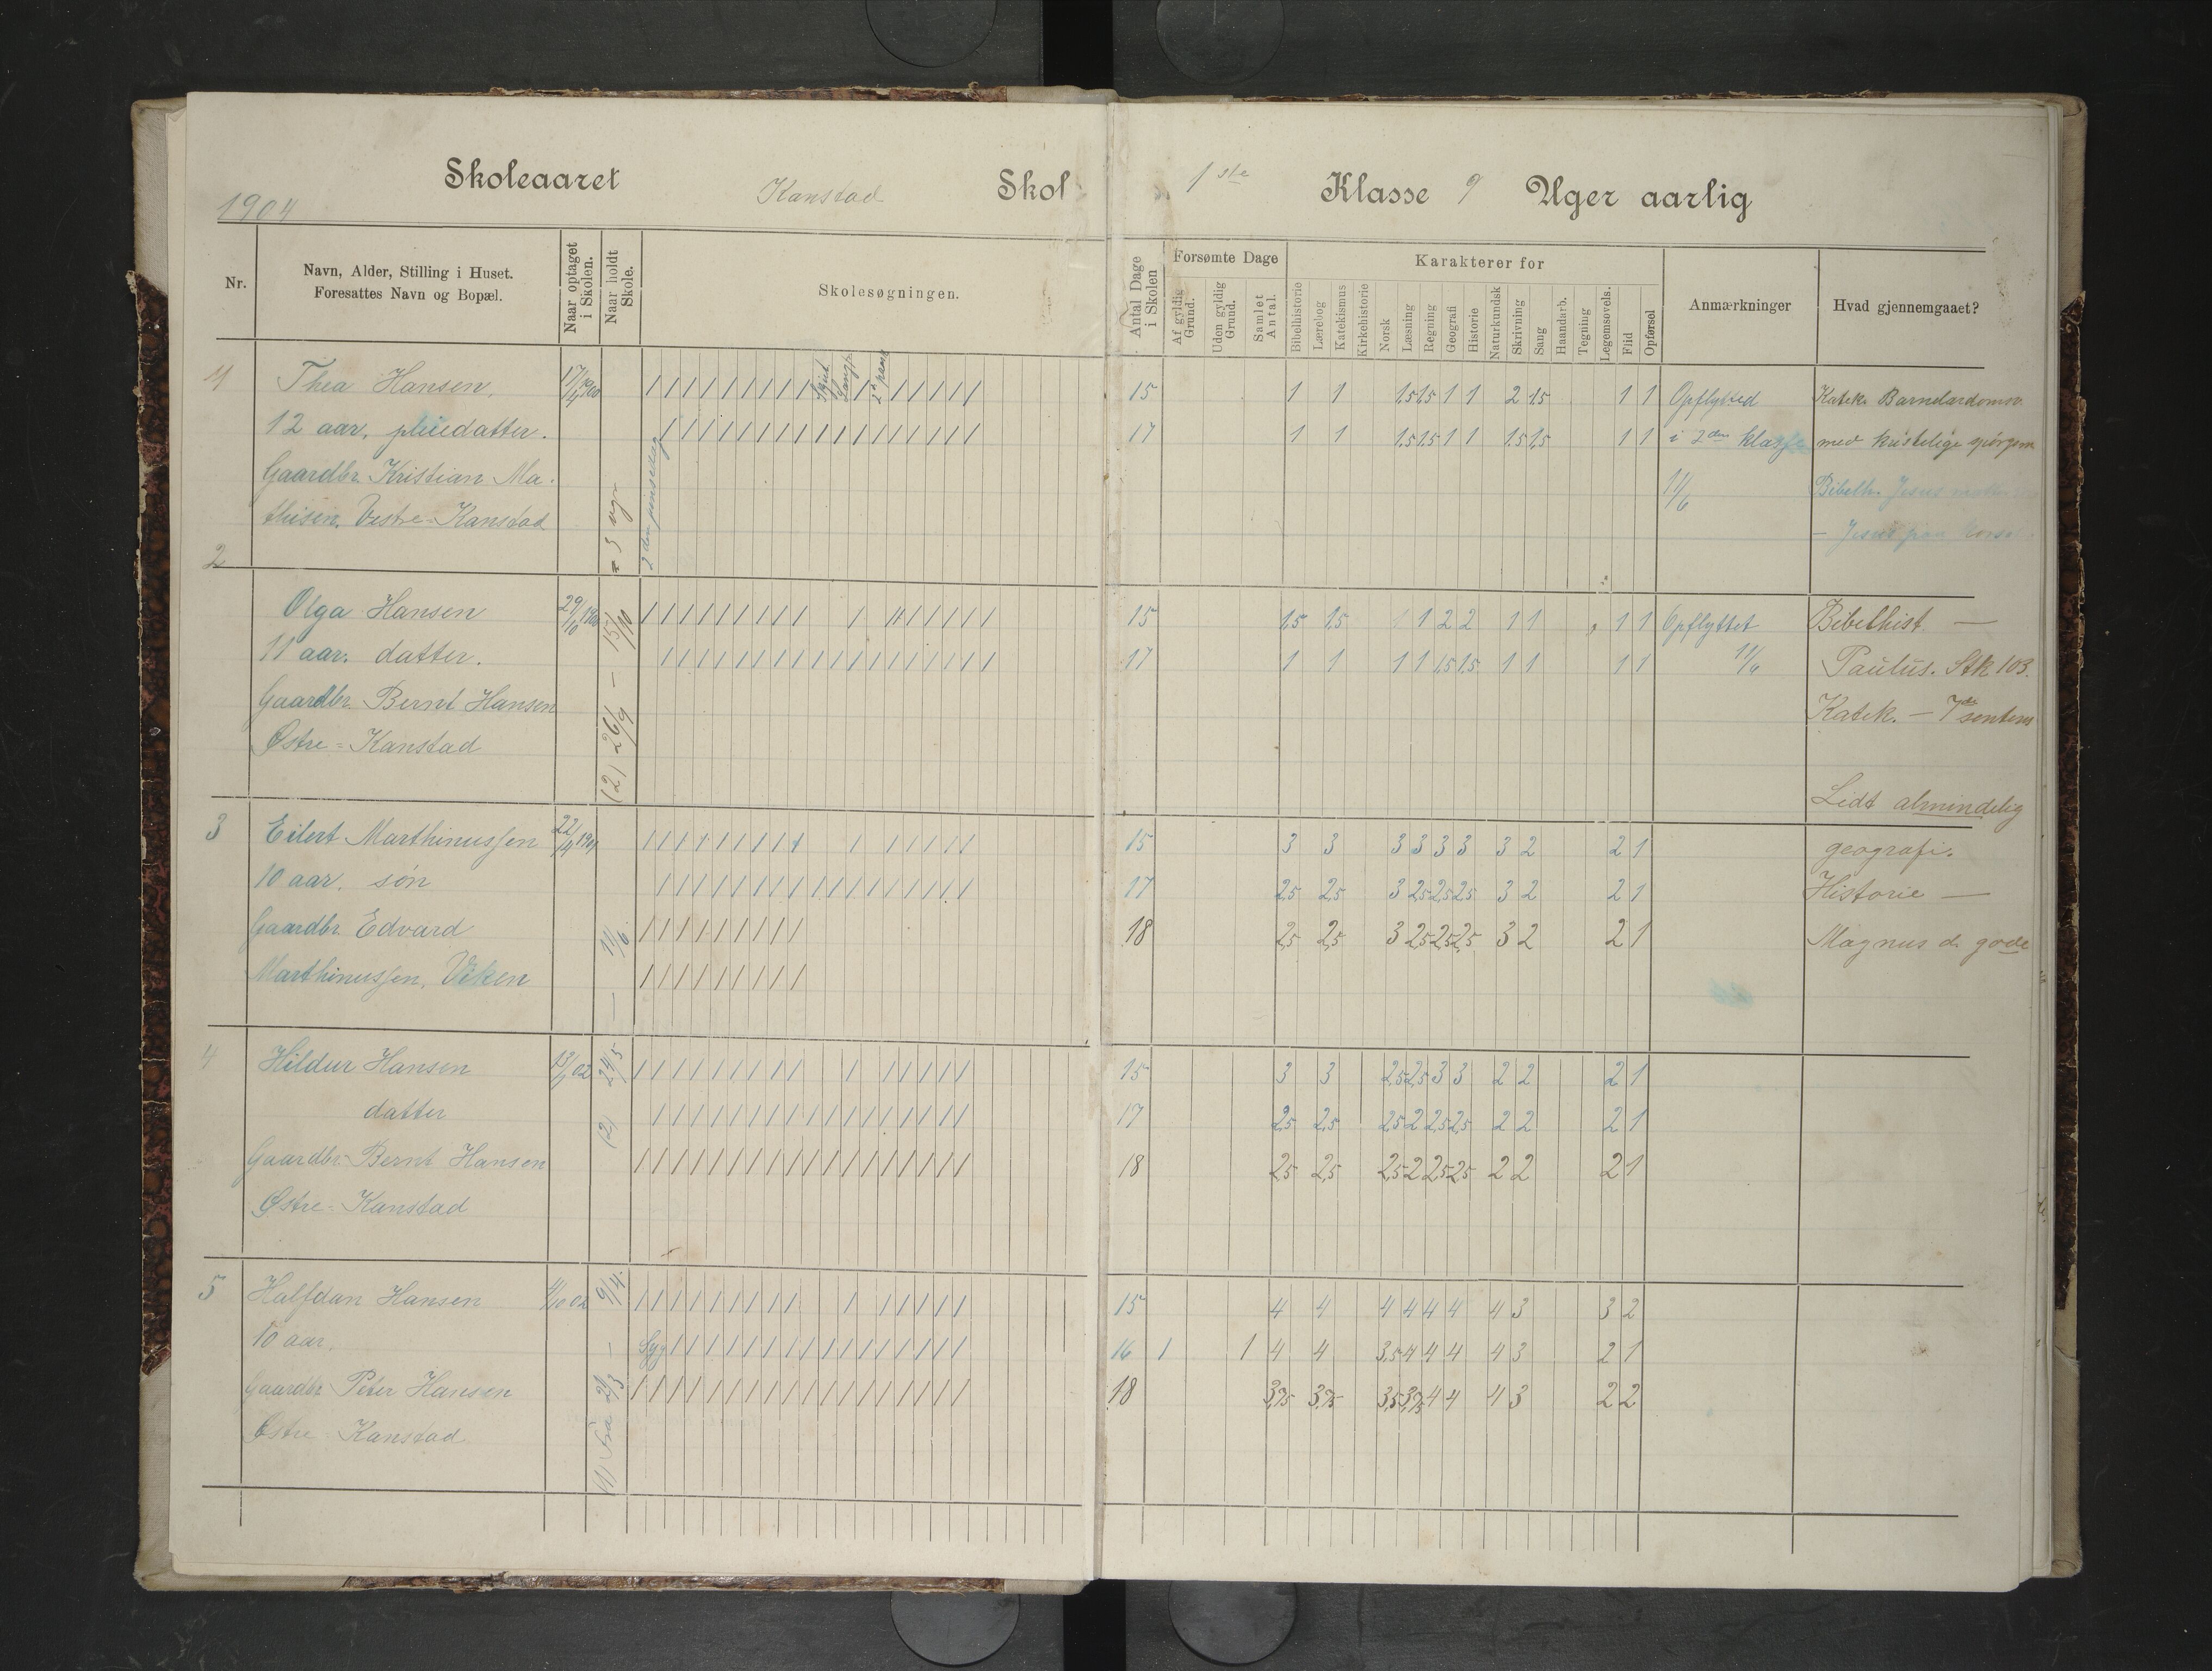 Skoleaaret 1904 Kanstad Skol 1ste Klasse 9 Uger aarlig
Nr.
Navn, Alder, Stilling i Huset.
Foresattes Navn og Bopæl.
Naar optaget i Skolen.
Naar holdt Skole.
Skolesøgningen.
Antal Dage i Skolen
Forsømte Dage
Af gyldig Grund.
Uden gyldig Grund.
Samlet Antal.
Karakterer for
Bibelhistorie
Lærebog
Katekismus
Kirkehistorie
Norsk
Læsning
Regning
Geografi
Historie
Naturkundsk
Skrivning
Sang
Haandarb.
Tegning
Legemsøvels.
Flid
Opførsel
Anmærkninger
Hvad gjennemgaaet?
(1) Fra 2/3 — 9/4
(2) 24/5 — 11/6
(2) 26/9 — 15/10
2den pinsedag
1 Thea Hansen, 17/4 1900 15 1 1 1,5 1,5 1 1 2 1,5 1 1 Opflytted Katek. Barnelærdomm
12 aar, pleiedatter. 17 1 1 1,5 1,5 1 1 1,5 1,5 1 1 i 2den klasse med kristelige spørgsm
Gaardbr. Kristian Ma- 11/6 Bibelh. Jesus
thisen, Vestre-Kanstad — Jesus paa korset
2 Olga Hansen 29/10 1900 15 1,5 1,5 1 1 2 2 1 1 1 1 Opflyttet Bibelhist —
11 aar. datter. 17 1 1 1 1 1,5 1,5 1 1 1 1 11/6 Paulus. Stk 103.
Gaardbr. Bernt Hansen Katek. — 7de
Østre = Kanstad
Lidt almindelig
3 Eilert Marthinussen 22/4 1901 15 3 3 3 3 3 3 3 2 2 1 geografi.
10 aar. søn 17 2,5 2,5 3 2,5 2,5 2,5 3 2 2 1 Historie —
Gaardbr. Edvard 18 2,5 2,5 3 2,5 2,5 2,5 3 2 2 1 Magnus d. gode
Marthinussen, Viken
4 Hildur Hansen 15 3 3 2,5 2,5 3 3 2 2 2 1
datter 17 2,5 2,5 2,5 2 2,5 2,5 2 2 2 1
Gaardbr. Bernt Hansen 18 2,5 2,5 2,5 2 2,5 2,5 2 2 2 1
Østre = Kanstad
5 Halfdan Hansen 15 4 4 4 4 4 4 4 3 3 2
10 aar. Syg 16 1 1 4 4 3,5 4 4 4 4 3 2 1
Gaardbr. Peter Hansen 18 3,75 3,75 3,5 3,75 4 4 4 3 2 2
Østre Kanstad